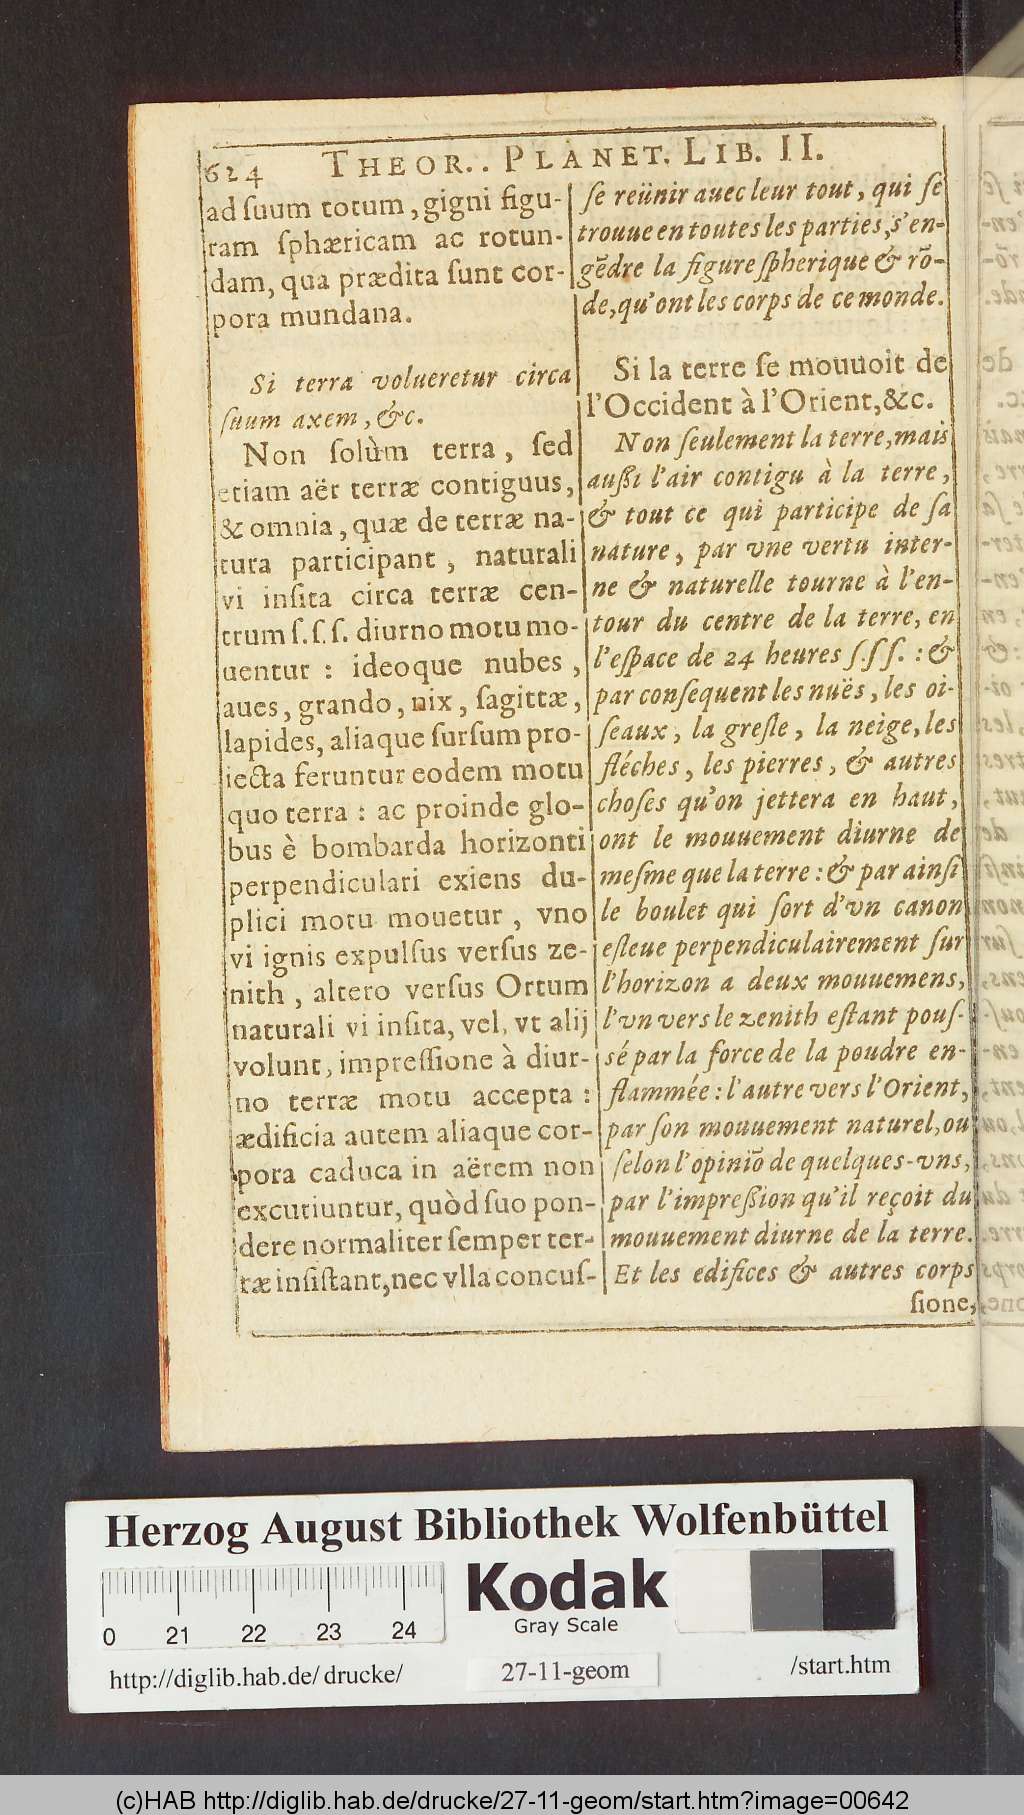 624 THEOR.. PLANET. LIB. II.
ad ſuum totum, gigni figu-
ram ſphæricam ac rotun-
dam, qua prædita ſunt cor-
pora mundana.
Si terra volueretur circa
ſuum axem, &c.
Non ſolùm terra, ſed
etiam aër terræ contiguus,
& omnia, quæ de terræ na-
tura participant, naturali
vi inſita circa terræ cen-
trum ſ. ſ. ſ. diurno motu mo-
uentur : ideoque nubes,
aues, grando, nix, ſagittæ,
lapides, aliaque ſurſum pro-
iecta feruntur eodem motu
quo terra : ac proinde glo-
bus è bombarda horizonti
perpendiculari exiens du-
plici motu mouetur, vno
vi ignis expulſus verſus ze-
nith, altero verſus Ortum
naturali vi inſita, vel, vt alij
volunt, impreſſione à diur-
no terræ motu accepta :
ædificia autem aliaque cor-
pora caduca in aërem non
excutiuntur, quòd ſuo pon-
dere normaliter ſemper ter-
ræ inſiſtant, nec vlla concuſ-
ſe reünir auec leur tout, qui ſe
trouue en toutes les parties, s'en-
gẽdre la figure ſpherique & rõ-
de, qu'ont les corps de ce monde.
Si la terre ſe mouuoit de
l'Occident à l'Orient, &c.
Non ſeulement la terre, mais
auſſi l'air contigu à la terre,
& tout ce qui participe de ſa
nature, par vne vertu inter-
ne & naturelle tourne à l'en-
tour du centre de la terre, en
l'eſpace de 24 heures ſ. ſ ſ. : &
par conſequent les nuës, les oi-
ſeaux, la greſle, la neige, les
fléches, les pierres, & autres
choſes qu'on jettera en haut,
ont le mouuement diurne de
meſme que la terre : & par ainſi
le boulet qui ſort d'vn canon
eſleue perpendiculairement ſur
l'horizon a deux mouuemens,
l'vn vers le zenith eſtant pouſ-
sé par la force de la poudre en-
flammée : l'autre vers l'Orient,
par ſon mouuement naturel, ou
ſelon l'opiniõ de quelques-vns,
par l'impreſſion qu'il reçoit du
mouuement diurne de la terre.
Et les edifices & autres corps
ſione,
Herzog August Bibliothek Wolfenbüttel
0 21 22 23 24
Kodak
Gray Scale
http://diglib.hab.de/ drucke/ 27-11-geom /start.htm
(c)HAB http://diglib.hab.de/drucke/27-11-geom/start.htm?image=00642